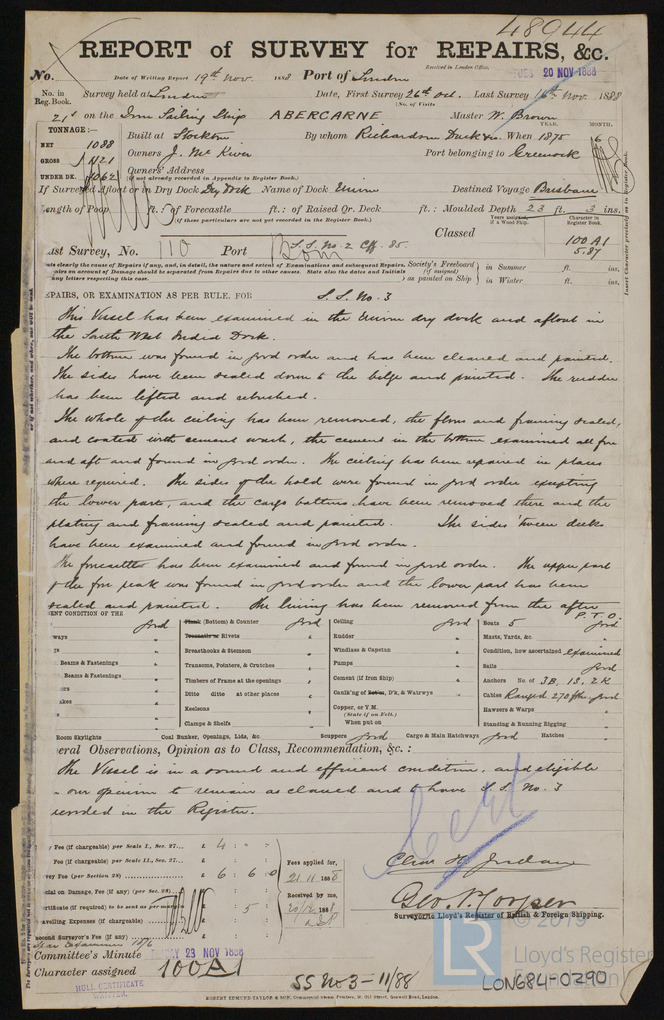 48944
REPORT of SURVEY for REPAIRS, &c.
Received in London Office,
No. Date of Writing Report 19th Nov. 1888 Port of London
TUES 20 NOV 1888
No. in Reg. Book. Survey held at London Date, First Survey 26th Oct. Last Survey 16th Nov. 1888
(No. of Visits
21 on the Iron Sailing Ship ABERCARNE Master W. Brown
TONNAGE:—
YEAR. MONTH.
NET 1088
Built at Stockton By whom Richardson Duck & Co. When 1875
GROSS 1121
Owners J. McKiver Port belonging to Greenock
UNDER DK. 1062
Owners' Address
(if not already recorded in Appendix to Register Book.)
If Surveyed Afloat or in Dry Dock Dry Dock Name of Dock Union Destined Voyage Brisbane
Length of Poop ft.: of Forecastle ft.: of Raised Qr. Deck ft.: Moulded Depth 23 ft. 3 ins.
(if these particulars are not yet recorded in the Register Book.)
Years assigned if a Wood Ship. Character in Register Book.
Classed 100 A1
5.87
Last Survey, No. 110 Port
S.S. No. 2 Cff. 85.
Society's Freeboard (if assigned) as painted on Ship
in Summer ft. ins.
in Winter ft. ins.
Insert Character precisely as in Register Book.
uts clearly the cause of Repairs if any, and, in detail, the nature and extent of Examinations and subsequent Repairs.
airs on account of Damage should be separated from Repairs due to other causes. State also the dates and Initials
ny letters respecting this case.
PAIRS, OR EXAMINATION AS PER RULE, FOR S.S. No. 3
This Vessel has been examined in the Union dry dock and afloat in
the South West India Dock.
The bottom was found in good order and has been cleaned and painted.
The sides have been scaled down to the bilge and painted. The rudder
has been lifted and rebushed.
The whole of the ceiling has been removed, the floors and framing scaled,
and coated with cement wash, the cement in the bottom examined all fore
and aft and found in good order. The ceiling has been repaired in places
where required. The sides of the hold were found in good order excepting
the lower parts, and the cargo battens have been removed there and the
plating and framing scaled and painted. The sides 'tween decks
have been examined and found in good order.
The forecastle has been examined and found in good order. The upper part
of the fore peak was found in good order and the lower part has been
scaled and painted. The lining has been removed from the after
P.T.O.
ENT CONDITION OF THE
good
ways
Beams & Fastenings
Beams & Fastenings
Room Skylights
Plank (Bottom) & Counter good
Treenails or Rivets
Breasthooks & Stemson
Transoms, Pointers, & Crutches
Timbers of Frame at the openings
Ditto ditto at other places
Keelsons
Clamps & Shelfs
Coal Bunker, Openings, Lids, &c.
Ceiling good
Rudder
Windlass & Capstan
Pumps
Cement (if Iron Ship)
Caulk'ng of Botm, D'k, & Watrwys
Copper, or Y.M.
(State if on Felt.)
When put on
Scuppers good Cargo & Main Hatchways good Hatches
Boats 5 good
Masts, Yards, &c.
Condition, how ascertained examined
Sails good
Anchors No. of 3B, 1S, 2K
Cables Ranged 270 fths good
Hawsers & Warps
Standing & Running Rigging
eral Observations, Opinion as to Class, Recommendation, &c.:
The Vessel is in a sound and efficient condition, and eligible
in our opinion to remain as classed and to have S.S. No. 3
recorded in the Register.
Cert
y Fee (if chargeable) per Scale I., Sec. 27... £ 4 : - : -
Fee (if chargeable) per Scale II., Sec. 27...
vey Fee (per Section 28) £ 6 : 6 : 0
ecial on Damage, Fee (if any) (per Sec. 28)
ertificate (if required) to be sent as per margin 5
avelling Expenses (if chargeable)
econd Surveyor's Fee (if any)
Fees applied for,
21.11.1888
Received by me,
20/12 1888
Geo. N. Cooper
Surveyor to Lloyd's Register of British & Foreign Shipping.
Committee's Minute FRIDAY 23 NOV 1888
Character assigned 100A1
SS No 3-11/88
HULL CERTIFICATE WRITTEN.
ROBERT EDMUND TAYLOR & SON, Commercial Steam Printers, 19, Old Street, Goswell Road, London.
LR
© 2019
Lloyd's Register
Foundation
LON684-0290